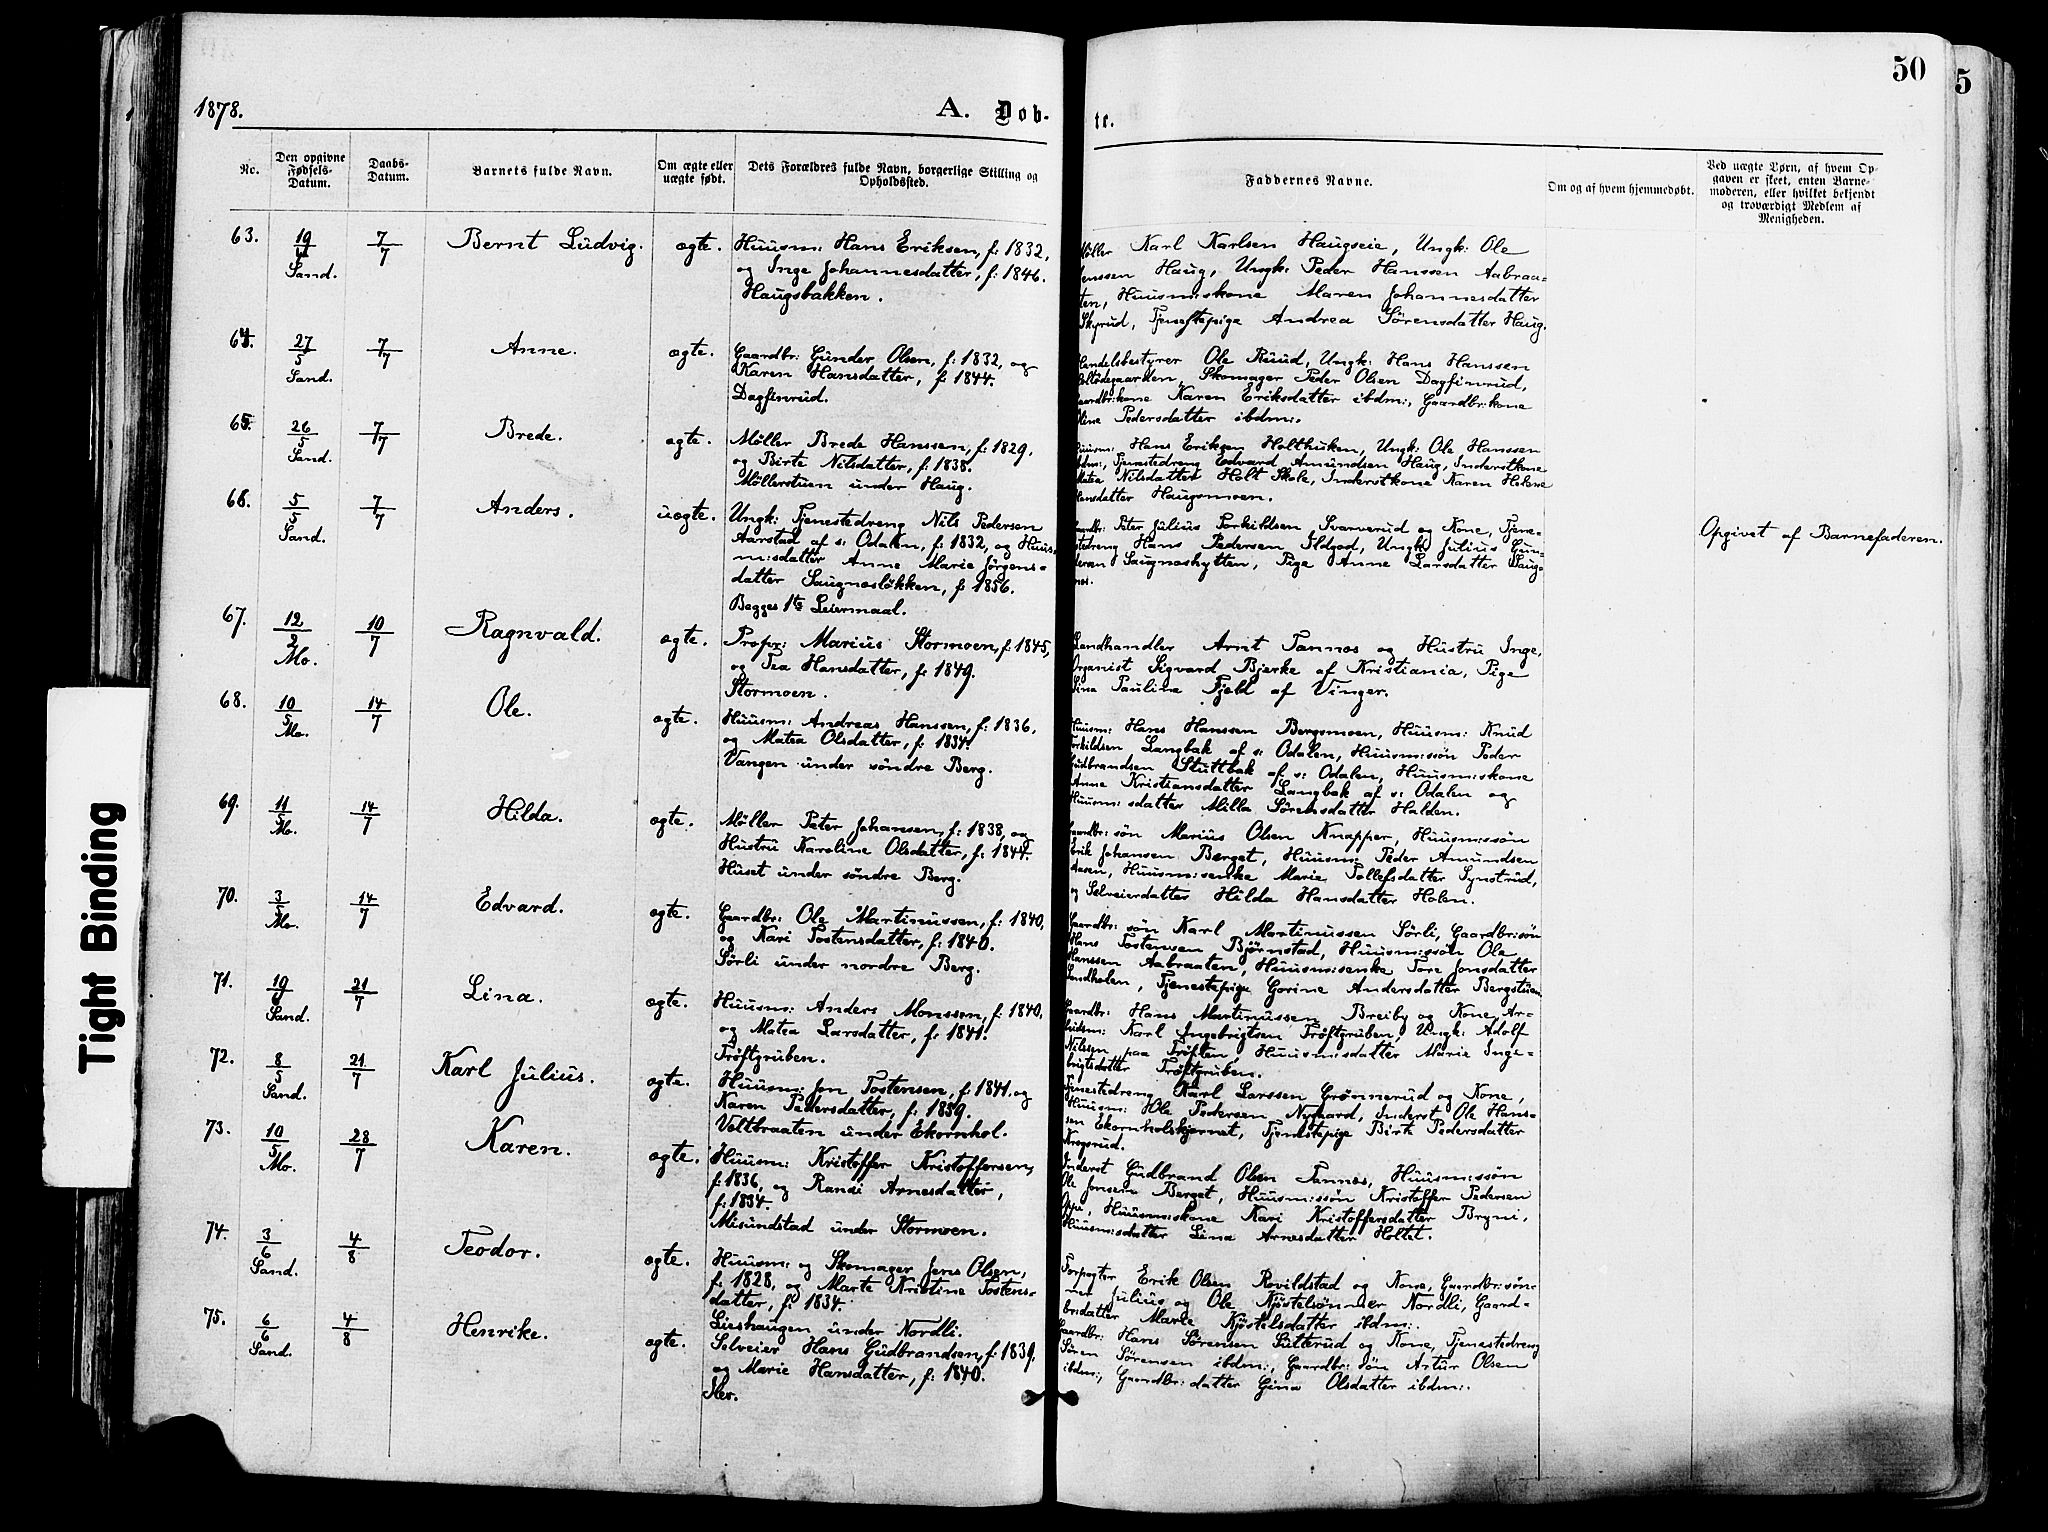 50
5
1878.
A. Døb-
te.
No.
Den opgivne Fødsels-Datum.
Daabs-Datum.
Barnets fulde Navn.
Om ægte eller uægte født.
Dets Forældres fulde Navn, borgerlige Stilling og Opholdssted.
Faddernes Navne.
Om og af hvem hjemmedøbt.
Ved uægte Børn, af hvem Op-
gaven er skeet, enten Barne-
moderen, eller hvilket bekjendt
og troværdigt Medlem af
Menigheden.
63. 19 Sand. 7/7 Bernt Ludvig. ægte. Huusm: Hans Eriksen, f: 1832,
og Inge Johannesdatter, f: 1846.
Haugsbakken.
Møller Karl Karlsen Haugseie, Ungk: Ole
Jenssen Haug, Ungk: Peder Hanssen Aabraa-
ten, Huusm:skone Maren Johannesdatter
Skyrud, Tjenestepige Andrea Sørensdatter Haug.
64. 27/5 Sand. 7/7 Anne. ægte. Gaardbr: Gunder Olsen, f: 1832, og
Karen Hansdatter, f: 1844.
Dagfinrud.
Handelsbestyrer Ole Ruud, Ungk: Hans Hanssen
Skomager Peder Olsen Dagfinrud,
Gaardbr:kone Karen Eriksdatter ibdm:, Gaardbr:kone
Pedersdatter ibdm:.
65. 26/5 Sand. 7/7 Brede. ægte. Møller Brede Hanssen, f: 1829,
og Birte Nilsdatter, f: 1838.
Møllerstuen under Haug.
Huusm: Hans Eriksen Holthuken, Ungk: Ole Hanssen
ibdm:, Tjenestedreng Edvard Amundsen Haug, Inderstkone
Matea Nilsdatter Holt Skole, Inderstkone Karen Helene
Hansdatter Haugsmoen.
66. 5/5 Sand. 7/7 Anders. uægte. Ungk: Tjenestedreng Nils Pedersen
Aarstad af s: Odalen, f: 1832, og Huus-
m:sdatter Anne Marie Jørgens-
datter Saugnesløkken, f: 1856.
Begges 1te Leiermaal.
Gaardbr: Peter Julius Torkildsen Svarverud og Kone, Tjene-
stedreng Hans Pedersen Ildgod, Ungk: Julius Gun-
dersen Saugneshytten, Pige Anne Larsdatter Saug-
nes.
Opgivet af Barnefaderen.
67. 12/2 Mo. 10/7 Ragnvald. ægte. Propr: Marius Stormoen, f: 1845,
og Tea Hansdatter, f: 1849.
Stormoen.
Landhandler Arnt Tannes og Hustru Inge,
Organist Sigvard Bjerke af Kristiania, Pige
Sina Pauline Fjeld af Vinger.
68. 10/5 Mo. 14/7 Ole. ægte. Huusm: Andreas Hanssen, f: 1836,
og Matea Olsdatter, f: 1834.
Vangen under søndre Berg.
Huusm: Hans Hanssen Bergsmoen, Huusm: Knud
Torkildsen Langbak af s: Odalen, Huusm:søn Peder
Gudbrandsen Stuttbak af s: Odalen, Huusm:skone
Anne Kristiansdatter Langbak af s: Odalen og
Huusm:sdatter Milla Sørensdatter Halden.
69. 11/5 Mo. 14/7 Hilda. ægte. Møller Peter Johansen, f: 1838, og
Hustru Karoline Olsdatter, f: 1844.
Huset under søndre Berg.
Gaardbr:søn Marius Olsen Knapper, Huusm:søn
Erik Johansen Berget, Huusm: Peder Amundsen
Huusm:senke Marie Tollefsdatter Synstrud,
og Selveierdatter Hilda Hansdatter Holen.
70. 3/5 Mo. 14/7 Edvard. ægte. Gaardbr: Ole Martinussen, f: 1840,
og Kari Tostensdatter, f: 1840.
Sørli under nordre Berg.
Gaardbr:søn Karl Martinussen Sørli, Gaardbr:søn
Hans Tostensen Bjørnstad, Huusm:søn Ole
Hanssen Aabraaten, Huusm:senke Tore Jonsdatter
Sandholen, Tjenestepige Gorine Andersdatter Bergstuen.
71. 19/6 Sand. 21/7 Lina. ægte. Huusm: Anders Monssen, f: 1840,
og Matea Larsdatter, f: 1841.
Trøftgruben.
Gaardbr: Hans Martinussen Breiby og Kone, Ar-
beidsm: Karl Ingebrigtsen Trøftgruben, Ungk: Adolf
Nilsen paa Trøften, Huusm:sdatter Marie Inge-
brigtsdatter Trøftgruben.
72. 8/5 Sand. 21/7 Karl Julius. ægte. Huusm: Jon Tostensen, f: 1841, og
Karen Pedersdatter, f: 1839.
Veltbraaten under Ekornhol.
Tjenestedreng Karl Larssen Grønnerud og Kone,
Huusm: Ole Pedersen Nygaard, Inderst Ole Hans-
sen Ekornholskjernet, Tjenestepige Birte Pedersdatter
Krogsrud.
73. 10/5 Mo. 28/7 Karen. ægte. Huusm: Kristoffer Kristoffersen,
f: 1836, og Randi Arnesdatter,
f: 1834.
Misundstad under Stormoen.
Inderst Gudbrand Olsen Tannes, Huusm:søn
Ole Jonsen Berget, Huusm:søn Kristoffer Pedersen
Oppi, Huusm:skone Kari Kristoffersdatter Bryni,
Huusm:sdatter Lina Arnesdatter Holtet.
74. 3/6 Sand. 4/8 Teodor. ægte. Huusm: og Skomager Jens Olsen,
f: 1828, og Marte Kristine Tostens-
datter, f: 1834.
Lieshaugen under Nordli.
Forpagter Erik Olsen Rovildstad og Kone, Gaardbr:søn-
ner Julius og Ole Kjøstelsønner Nordli, Gaard-
brdatter Marte Kjøstelsdatter ibdm:.
75. 6/6 Sand. 4/8 Henrike. ægte. Selveier Hans Gudbrandsen, f: 1839,
og Marie Hansdatter, f: 1840.
Nes.
Gaardbr: Hans Sørensen Sutterud og Kone, Tjenestedreng
Søren Sørensen ibdm:, Gaardbr:søn Artur Olsen
ibdm:, Gaardbr:datter Gina Olsdatter ibdm:.
Tight Binding